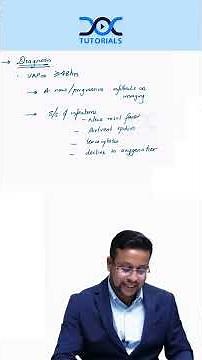 DOC
TUTORIALS
→ Diagnosis
VAP ≥48hrs
→ A new/progressive infiltrate on imaging
→ S/S of infection
- New onset fever
- Purulent sputum
- leucocytosis
- decline in oxygenation